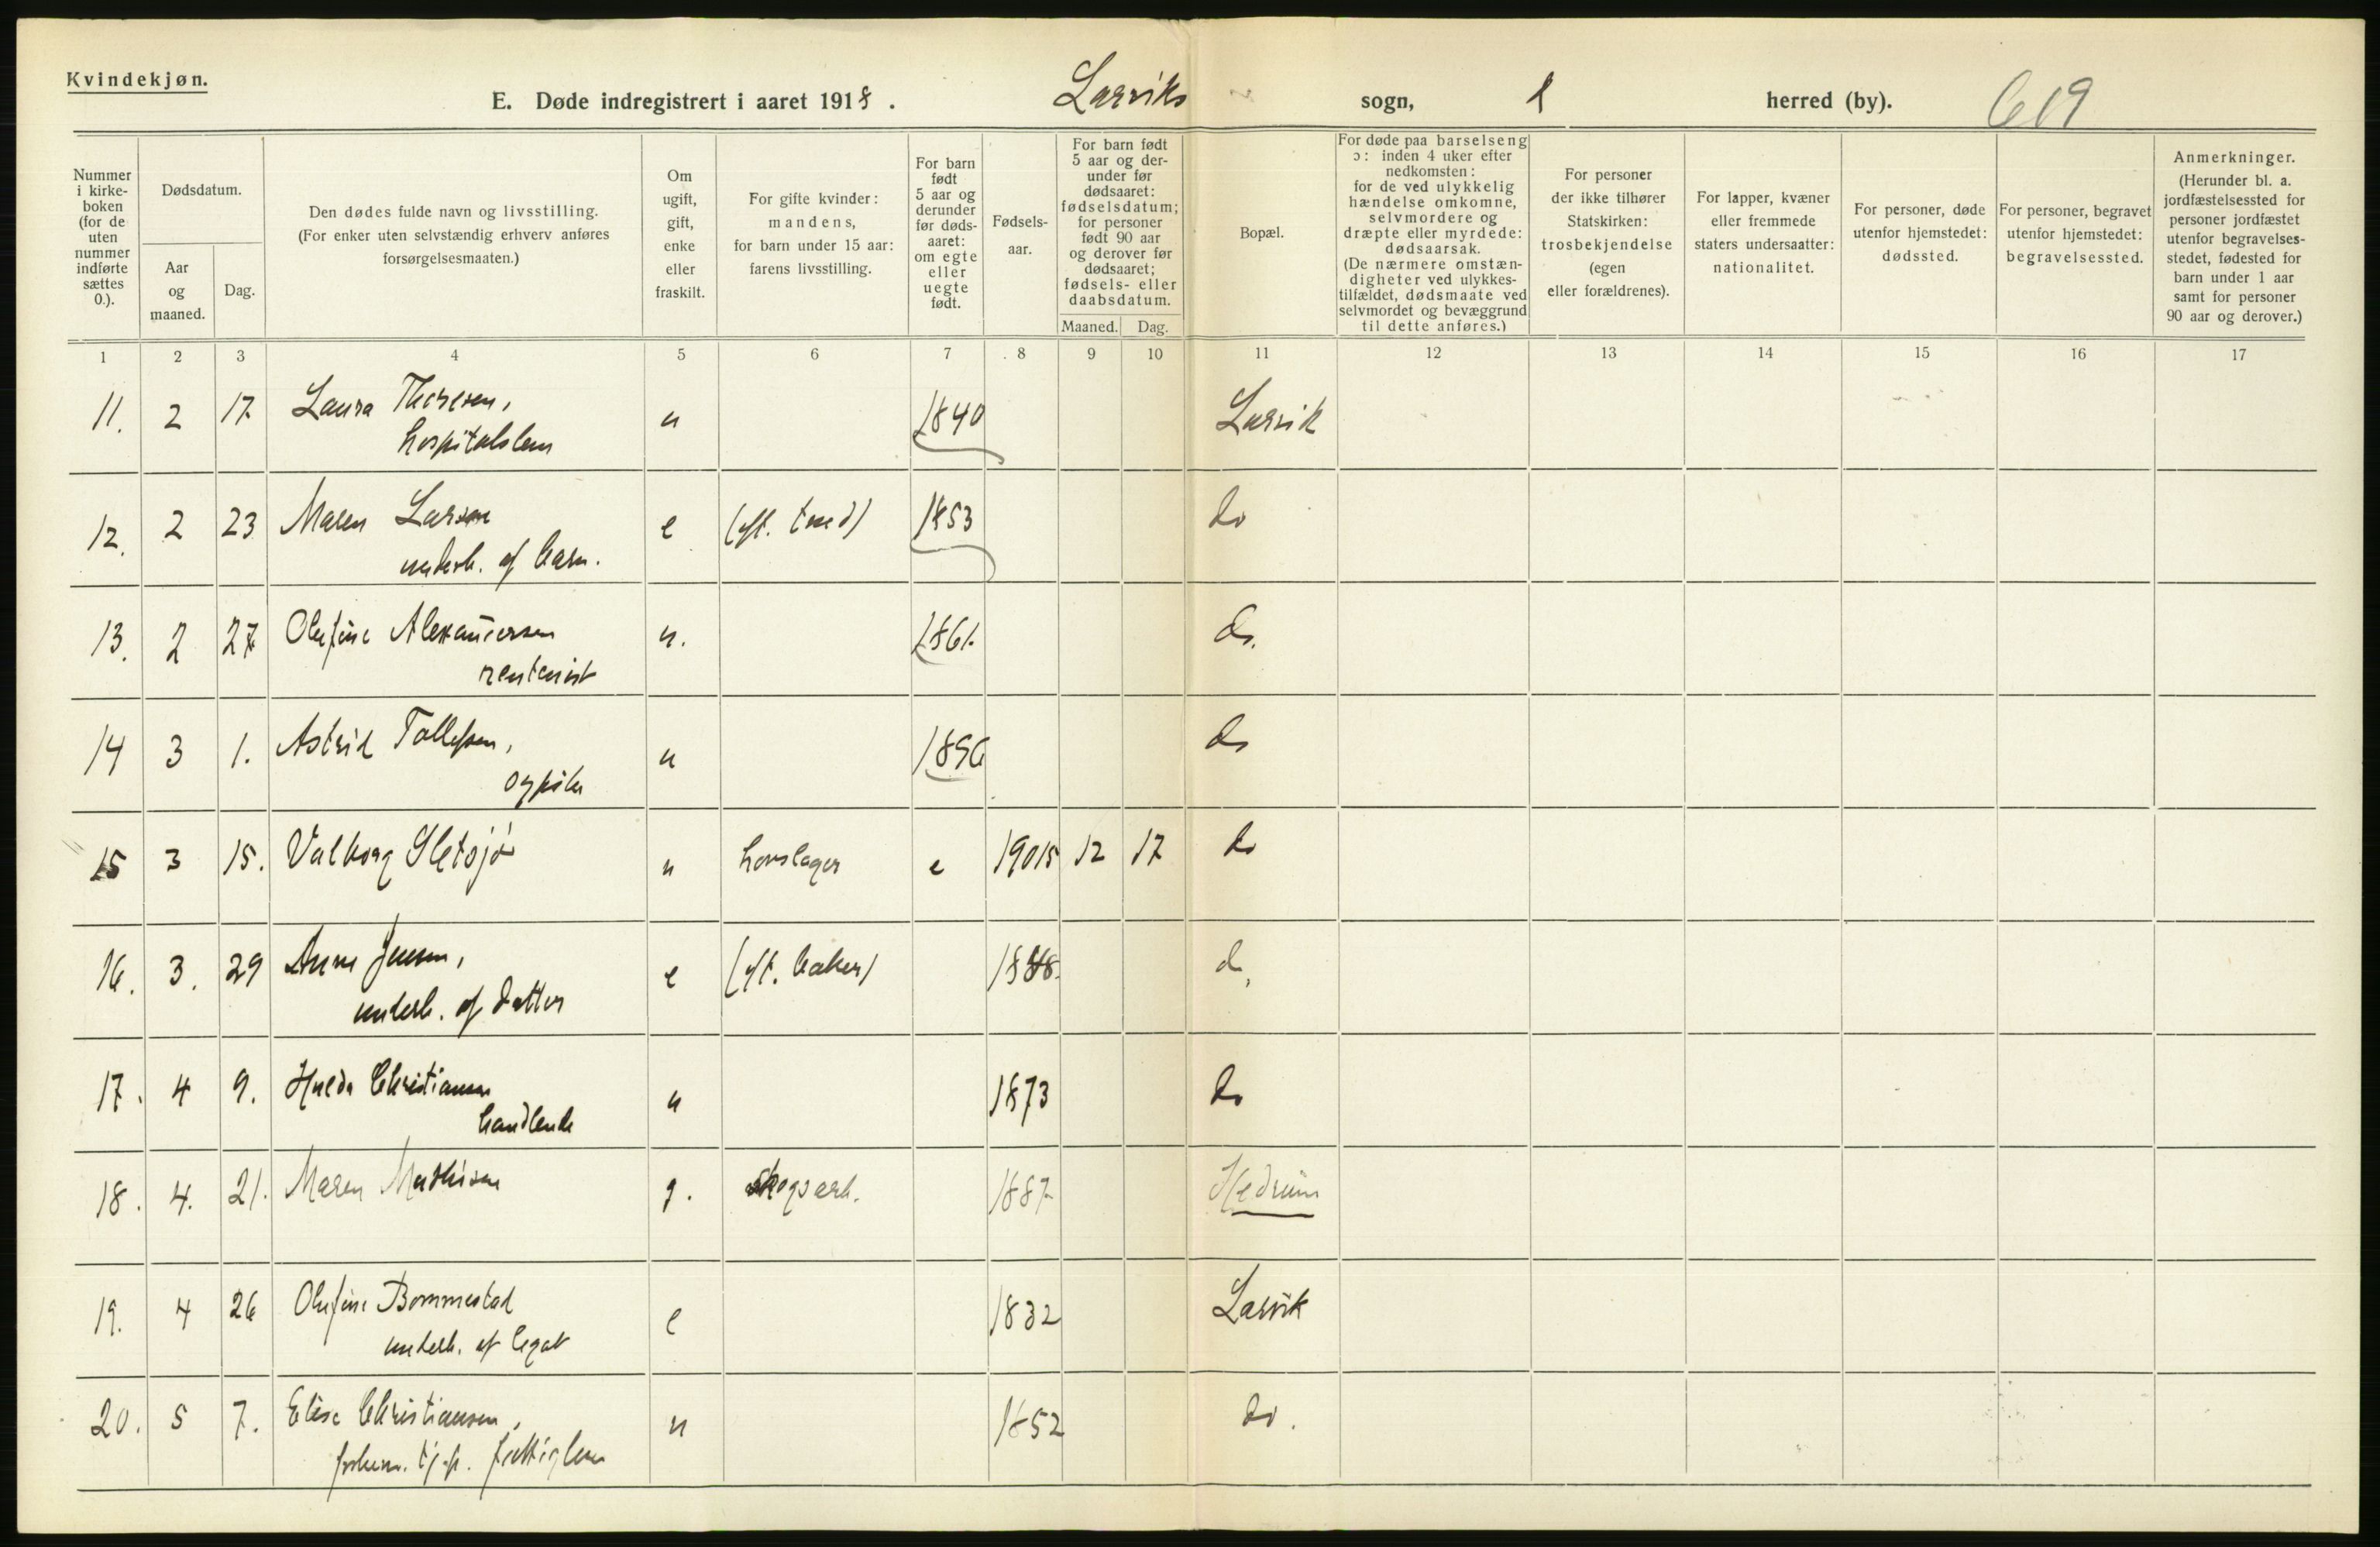 Kvindekjøn.
E. Døde indregistrert i aaret 1918. Larviks sogn, herred (by). 619
Nummer i kirkeboken (for de uten nummer indførte sættes 0.).
Dødsdatum.
Aar og maaned.
Dag.
Den dødes fulde navn og livsstilling.
(For enker uten selvstændig erhverv anføres forsørgelsesmaaten.)
Om ugift, gift, enke eller fraskilt.
For gifte kvinder: mandens, for barn under 15 aar: farens livsstilling.
For barn født 5 aar og derunder før dødsaaret: om egte eller uegte født.
Fødselsaar.
For barn født 5 aar og derunder før dødsaaret: fødselsdatum; for personer født 90 aar og derover før dødsaaret; fødsels- eller daabsdatum.
Maaned. Dag.
Bopæl.
For døde paa barselseng ɔ: inden 4 uker efter nedkomsten: for de ved ulykkelig hændelse omkomne, selvmordere og dræpte eller myrdede: dødsaarsak. (De nærmere omstændigheter ved ulykkestilfældet, dødsmaate ved selvmordet og bevæggrund til dette anføres.)
For personer der ikke tilhører Statskirken: trosbekjendelse (egen eller forældrenes).
For lapper, kvæner eller fremmede staters undersaatter: nationalitet.
For personer, døde utenfor hjemstedet: dødssted.
For personer, begravet utenfor hjemstedet: begravelsessted.
Anmerkninger. (Herunder bl. a. jordfæstelsessted for personer jordfæstet utenfor begravelsesstedet, fødested for barn under 1 aar samt for personer 90 aar og derover.)
1 2 3 4 5 6 7 8 9 10 11 12 13 14 15 16 17
11. 2 17 Laura Thoresen, u 1840 Larvik
hospitalslem
12. 2 23 Maren Larsen e 1853 do
underh. af barn.
13. 2 27 Olefine Alexandersen u. 1861. do.
rentenist
14 3 1. Astrid Tollefsen, u 1896 do
15 3 15. Valborg Sletsjø u hovslager e 1915 12 17 do
16. 3. 29 Anne Jensen, e (ft. baker) do,
underh. af datter
17. 4 9. Hulda Christiansen u 1873 do
handlende
18. 4. 21. Maren Mathisen g. skogsarb. 1887 Hedrum
19. 4 26 Olefine Bommestad e 1832 Larvik
underh. af legat
20. 5 7. Elise Christiansen, u 1852 do.
forhenv. tj.p. fattiglem